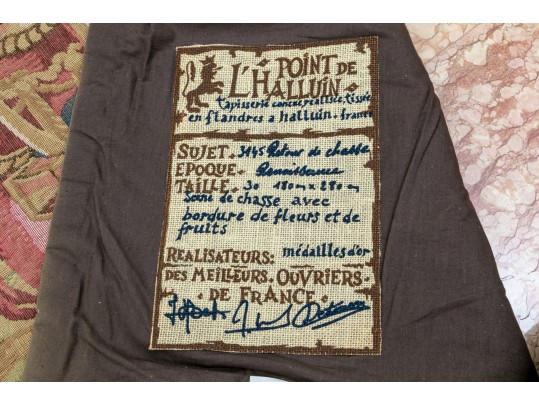 POINT DE
L'HALLUIN.
tapisserie concue, realisée, tissée
en flandres a halluin. france
SUJET. 3145 Retour de chasse
EPOQUE. Renaissance
TAILLE. 30 180 m x 280 m
Scene de chasse avec
bordure de fleurs et de
fruits
REALISATEURS: médailles d'or
DES MEILLEURS. OUVRIERS
· DE FRANCE ·